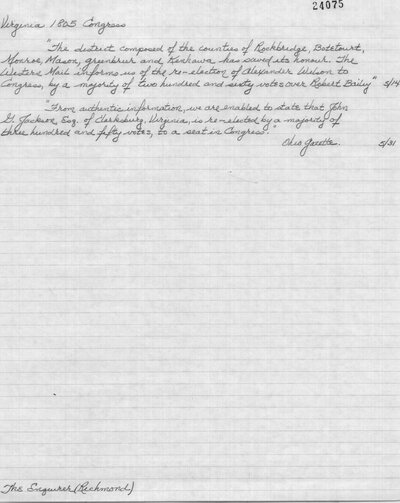 24075
Virginia 1805 Congress
"The district composed of the counties of Rockbridge, Botetourt,
Monroe, Mason, greenbrier and Kanhawa has saved its honour. The
Western Mail informs us of the re-election of Alexander Wilson to
Congress, by a majority of two hundred and sixty votes over Robert Baily" 5/14
"From authentic information, we are enabled to state that John
G. Jackson, Esq. of Clarksburg, Virginia, is re-elected by a majority of
three hundred and fifty votes, to a seat in Congress."
Ohio Gazette. 5/31
The Enquirer (Richmond)